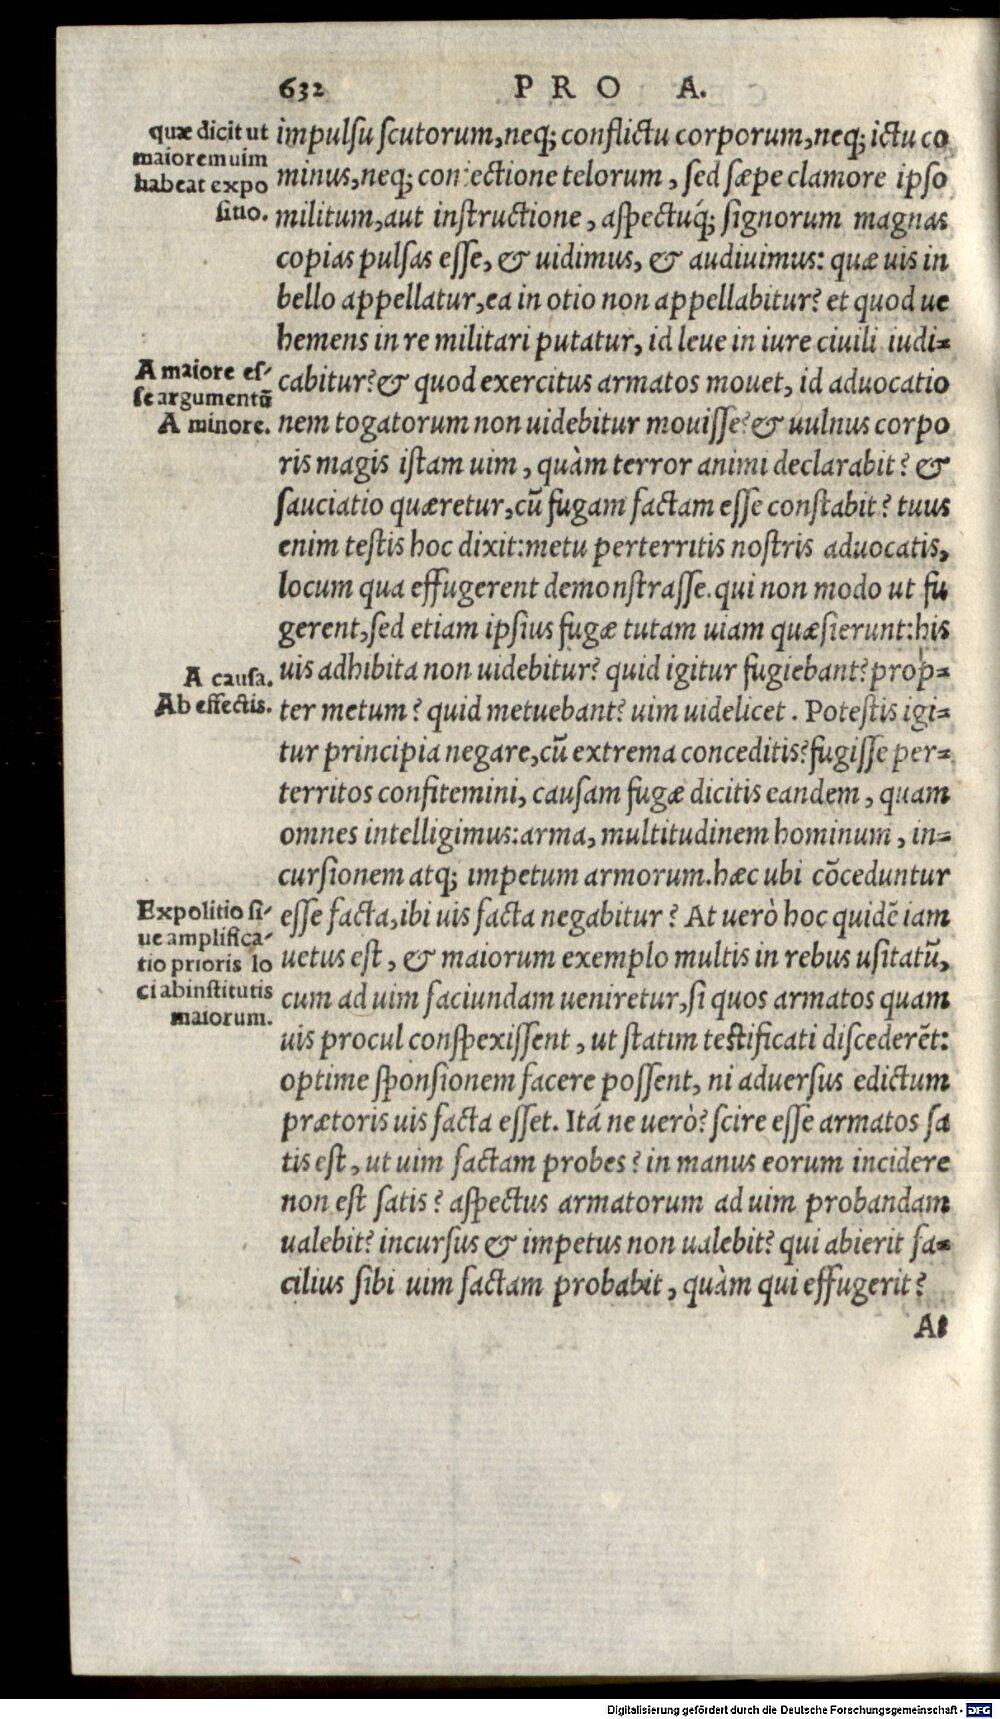 632 PRO A.
quæ dicit ut
maiorem uim
habeat expo
sitio.
impulsu scutorum, neq; conflictu corporum, neq; ictu co
minus, neq; coniectione telorum, sed sæpe clamore ipso
militum, aut instructione, aspectuq́; signorum magnas
copias pulsas esse, & uidimus, & audiuimus: quæ uis in
bello appellatur, ea in otio non appellabitur? et quod ue
hemens in re militari putatur, id leue in iure ciuili iudi=
A maiore es-
se argumentũ
A minore.
cabitur? & quod exercitus armatos mouet, id aduocatio
nem togatorum non uidebitur mouisse? & uulnus corpo
ris magis istam uim, quàm terror animi declarabit? &
sauciatio quæretur, cũ fugam factam esse constabit? tuus
enim testis hoc dixit: metu perterritis nostris aduocatis,
locum qua effugerent demonstrasse. qui non modo ut fu
gerent, sed etiam ipsius fugæ tutam uiam quæsierunt: his
A causa.
Ab effectis.
uis adhibita non uidebitur? quid igitur fugiebant? prop=
ter metum? quid metuebant? uim uidelicet. Potestis igi=
tur principia negare, cũ extrema conceditis? fugisse per=
territos confitemini, causam fugæ dicitis eandem, quam
omnes intelligimus: arma, multitudinem hominum, in=
cursionem atq; impetum armorum. hæc ubi cõceduntur
Expolitio si-
ue amplifica-
tio prioris lo
ci ab institutis
maiorum.
esse facta, ibi uis facta negabitur? At uerò hoc quidẽ iam
uetus est, & maiorum exemplo multis in rebus usitatũ,
cum ad uim faciundam ueniretur, si quos armatos quam
uis procul conspexissent, ut statim testificati discederẽt:
optime sponsionem facere possent, ni aduersus edictum
prætoris uis facta esset. Itá ne uerò? scire esse armatos sa
tis est, ut uim factam probes? in manus eorum incidere
non est satis? aspectus armatorum ad uim probandam
ualebit? incursus & impetus non ualebit? qui abierit fa=
cilius sibi uim factam probabit, quàm qui effugerit?
At
Digitalisierung gefördert durch die Deutsche Forschungsgemeinschaft - DFG